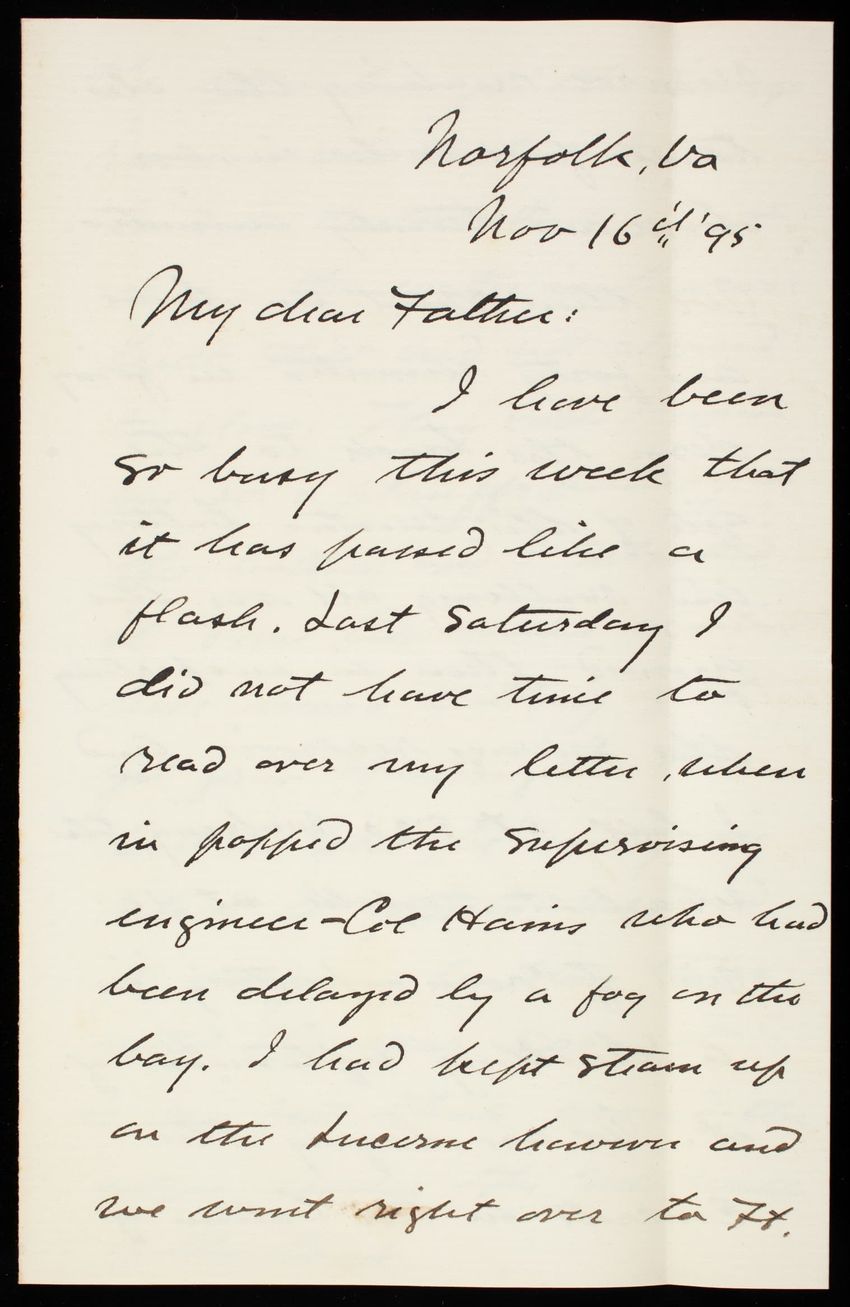 Norfolk, Va
Nov 16th '95
My dear Father:
I have been
so busy this week that
it has passed like a
flash. Last Saturday I
did not have time to
read over my letter, when
in popped the Supervising
engineer-Col Hains who had
been delayed by a fog on the
bay. I had kept steam up
on the Lucerne however and
we went right over to Ft.